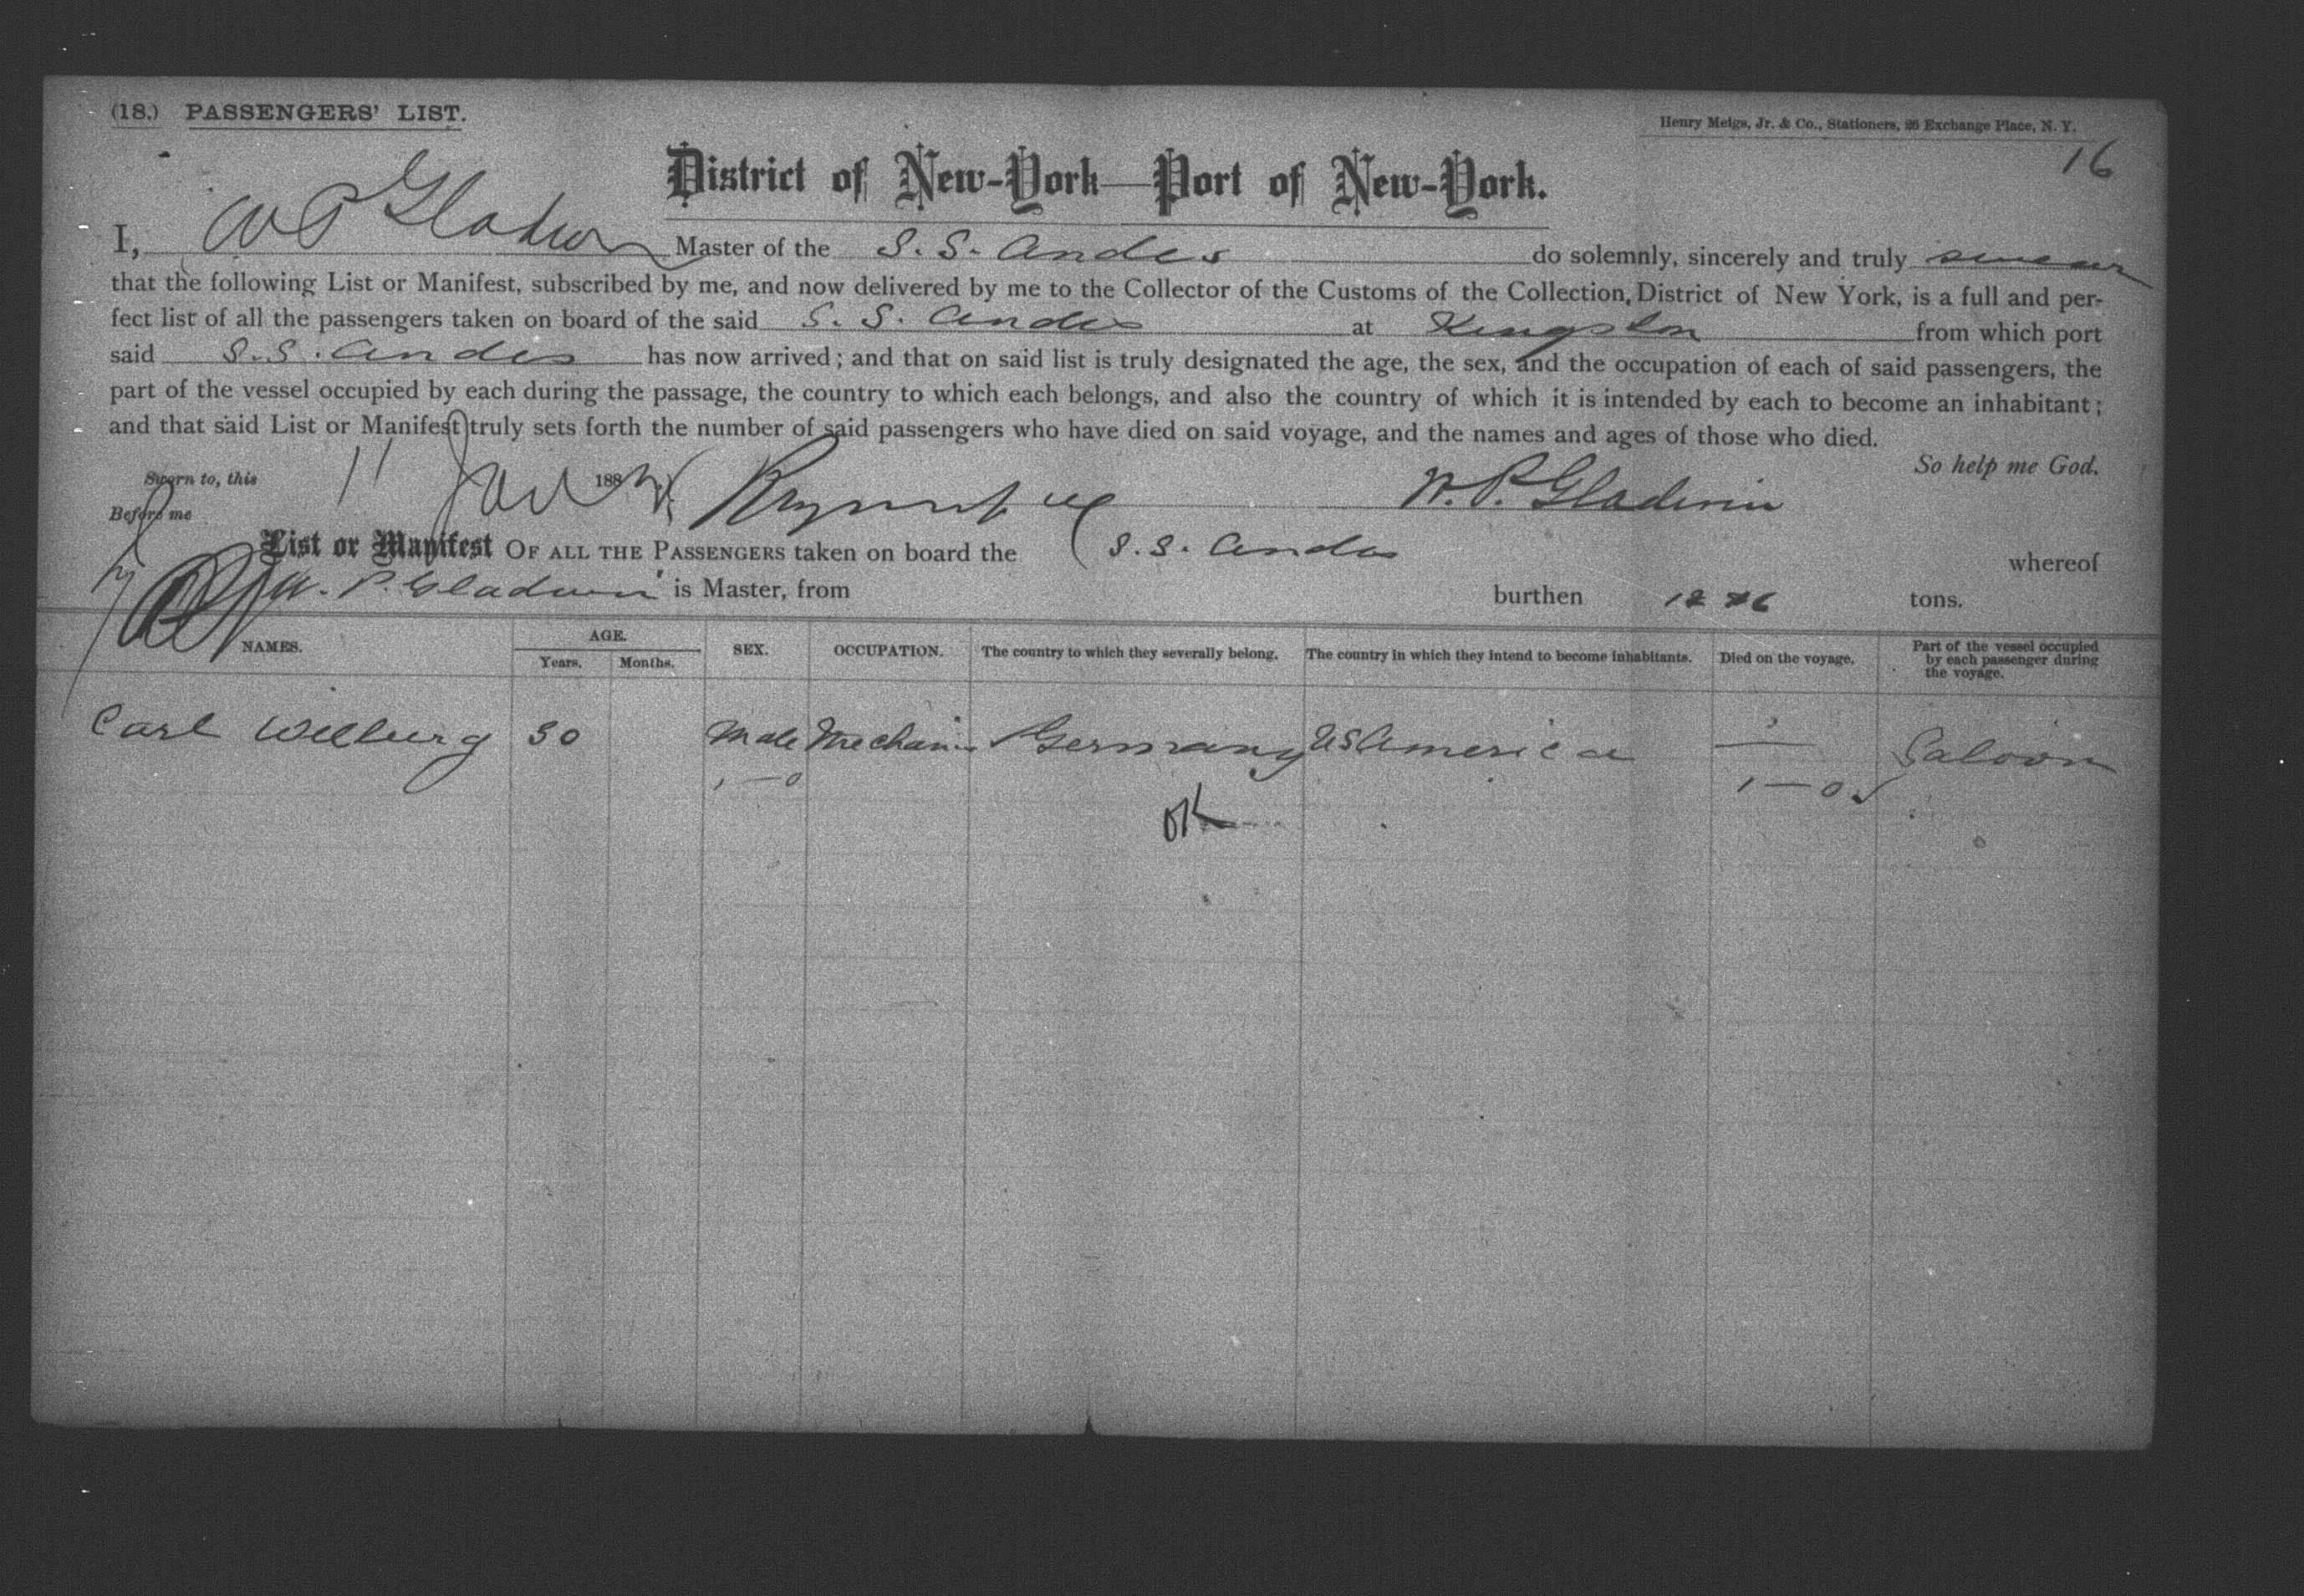 (18.) PASSENGERS' LIST.
Henry Meigs, Jr. & Co., Stationers, 26 Exchange Place, N. Y.
16
District of New-York—Port of New-York.
I, W P Gladwin Master of the S. S. Andes do solemnly, sincerely and truly swear
that the following List or Manifest, subscribed by me, and now delivered by me to the Collector of the Customs of the Collection District of New York, is a full and per-
fect list of all the passengers taken on board of the said S. S. Andes at Kingston from which port
said S. S. Andes has now arrived; and that on said list is truly designated the age, the sex, and the occupation of each of said passengers, the
part of the vessel occupied by each during the passage, the country to which each belongs, and also the country of which it is intended by each to become an inhabitant;
and that said List or Manifest truly sets forth the number of said passengers who have died on said voyage, and the names and ages of those who died.
So help me God.
Sworn to, this 11 Jan 188
W. P. Gladwin
Before me
List or Manifest OF ALL THE PASSENGERS taken on board the S. S. Andes whereof
W. P. Gladwin is Master, from burthen tons.
NAMES. AGE. SEX. OCCUPATION. The country to which they severally belong. The country in which they intend to become inhabitants. Died on the voyage. Part of the vessel occupied by each passenger during the voyage.
Years. Months.
Carl 30 Male Mechanic Germany US America Saloon
1 — 0 1 — 0
OK